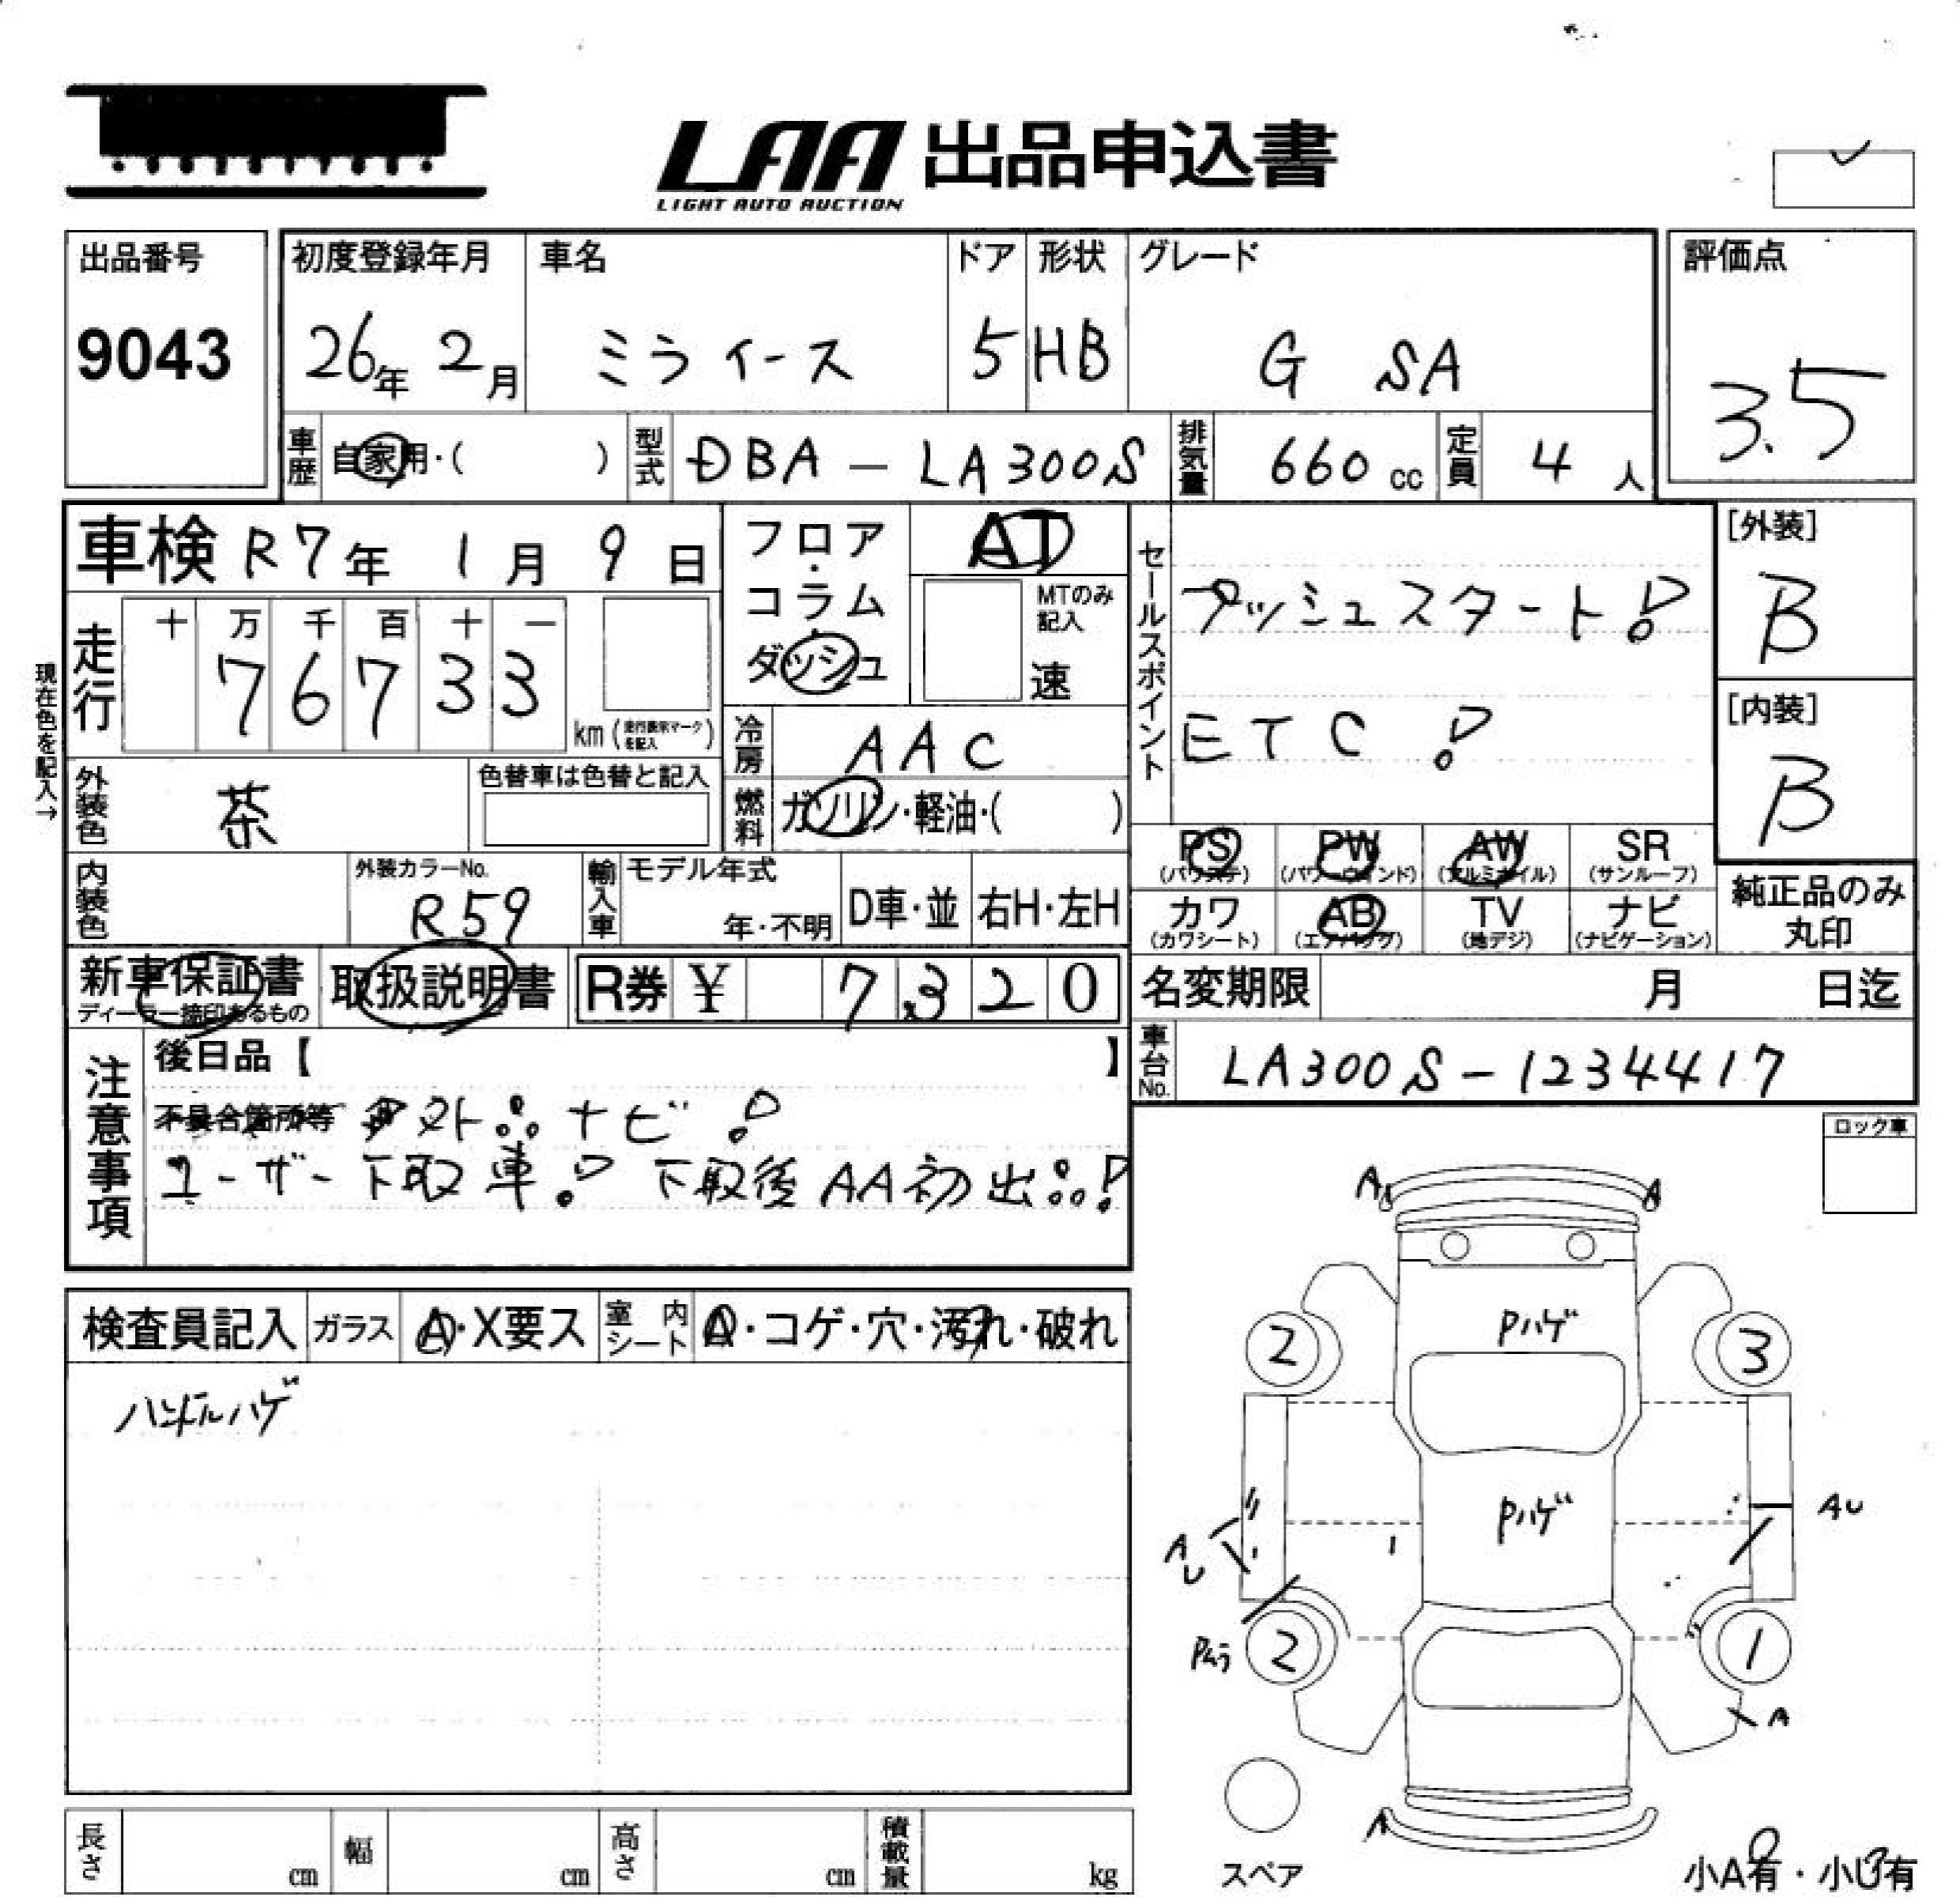 LAA 出品申込書
LIGHT AUTO AUCTION
出品番号
9043
初度登録年月
26年 2月
車名
ミライース
ドア
5
形状
HB
グレード
G SA
評価点
3.5
車歴 自家用・( )
型式 DBA-LA300S
排気量 660cc
定員 4人
車検 R7年 1月 9日
走行
十 万 千 百 十 一
7 6 7 3 3
km(走行表示マークを記入)
現在色を記入→
フロア・コラム・ダッシュ
AT
MTのみ記入
速
冷房 AAC
燃料 ガソリン・軽油・( )
セールスポイント
プッシュスタート!
ETC!
[外装]
B
[内装]
B
外装色 茶
色替車は色替と記入
内装色
外装カラーNo.
R59
輸入車
モデル年式
年・不明
D車・並
右H・左H
PS
(パワステ)
PW
(パワーウインド)
AW
(アルミホイル)
SR
(サンルーフ)
カワ
(カワシート)
AB
(エアバッグ)
TV
(地デジ)
ナビ
(ナビゲーション)
純正品のみ
丸印
新車保証書
ディーラー捺印あるもの
取扱説明書
R券 ¥ 7,320
名変期限 月 日迄
車台No. LA300S-1234417
注意事項
後日品【 】
不具合箇所等 ナビ!
ユーザー下取車! 下取後AA初出!!
ロック車
検査員記入
ガラス A・X要ス
室内シート A・コゲ・穴・汚れ・破れ
ハンドルハゲ
A A
Pハゲ
2 3
Pハゲ
AU
AU
Pムラ
2 1
A
A
スペア
小A有・小U有
長さ cm
幅 cm
高さ cm
積載量 kg